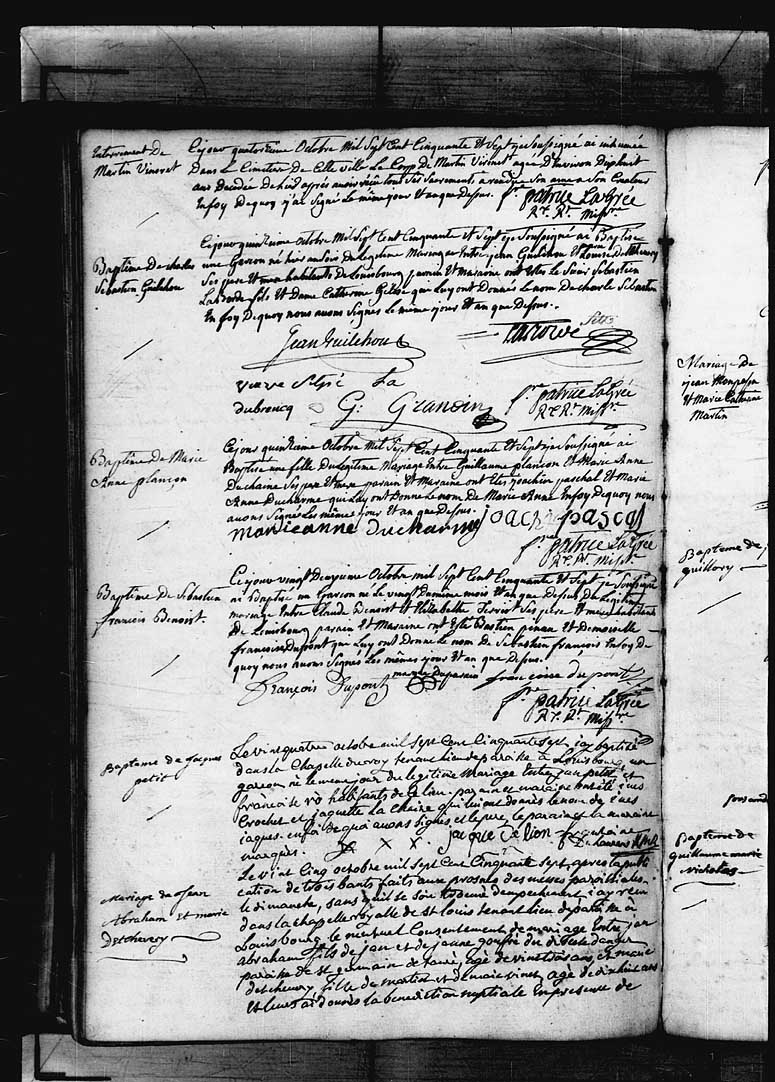 Enterrement de
Martin Vincent
Ce jour quatorzieme Octobre Mil Sept Cent Cinquante Et Sept je Soussigné ai inhumée
Dans Le Cimetiere De Cette ville Le Corps De Martin agé D'Environ Dixhuit
ans Decedée De hier après avoir recu tout Ses Sacrements a rendue Son ame a Son Createur
En foy De quoy j'ai Signé Le même jour Et an que Dessus. f. patrice LaGrée
Rt. Rt. Miss.re
Baptême De charles
Sebastien Guilchou
Ce jour quinzieme octobre Mil Sept Cent Cinquante Et Sept je Soussigné ai Baptise
une Garcon né hier au Soir Du Legitime Mariage Entre jean Guilchou Et Louise
Ses pere Et mere habitants De Louisbourg parain et Maraine ont Etes Le Sieur Sébastien
Laborde fils Et Dame Catherine qui Luy ont Donnés Le nom De charle Sebastien
En foy De quoy nous avons Signes Le meme jour Et an que Dessus.
Jean Guilchou
Laborde fils
veuve La
dubrocq G: Grandin f. patrice LaGrée
Rt. Rt. Miss.re
Baptême De Marie
Anne plançon
Ce jour quinzieme Octobre Mil Sept Cent Cinquante Et Sept je Soussigné ai
Baptise une fille Du Legitime Mariage Entre Guillaume plançon Et Marie Anne
Duchaine Ses pere Et mere parain Et Maraine ont Etes joachim paschal Et Marie
Anne Ducharme qui Luy ont Donne Le nom De Marie Anne En foy De quoy nous
avons Signés Les même jour Et an que Dessus.
marie anne ducharme joach pascal
f. patrice LaGrée
Rt. Rt. Miss.re
Baptême De Sébastien
francois Benoist.
Ce jour vingt Deuxieme Octobre mil Sept Cent Cinquante Et Sept je Soussigné
ai Baptisé un Garcon né Le vingt Deuxieme mois Et an que Dessus Du Legitime
mariage Entre Claude Benoist Et Elizabette Ses père Et mere habitants
De Louisbourg parain et Maraine ont Etes Bastien Et Demoiselle
francoise Dupont qui Luy ont Donne Le nom De Sebastien françois En foy De
quoy nous avons Signés Les mêmes jour Et an que Dessus.
François Dupont marque Du parain francoise du pont
f. patrice LaGrée
Rt. Rt. Miss.re
Bapteme de Jacques
petit
Le vint quatre octobre mil sept Cent Cinquante sept jay baptisé
dans la Chapelle du roy tenant lieu de paroisse à Louisbourg un
garcon né le meme jour du legitime Mariage petit et
francoise ro habitants de ce lieu. parain et maraine ont été
Crochet et jaquette la Chaine qui lui ont donnés le nom de
jaques. en foi de quoi avons signés et le pere, le parain et la maraine
marqués. x x x. jacque Le lion
Mariage de Jean
Abraham et marie
Detcheverry
Le vint Cinq octobre mil sept Cent Cinquante sept, apres la publi
cation de trois bants faits aux prosnes des messes paroissiales
le dimanche, sans qu'il se soit trouvé d'empechement, j'ay reçu
dans la chapelle royalle de st louis tenant lieu de paroisse à
Louisbourg le mutuel Consentement de mariage Entre jan
abraham fils de jan et de jeanne du
paroisse de st germain agé de vint trois ans, et marie
detcheverry fille de martin et de marie agé de dixhuit ans
et leur ai donné la benediction nuptiale En presence de
Mariage De
jean
Et Marie Catherine
Martin
Bapteme de
guillory
Bapteme de
guillaume marie
nicholas